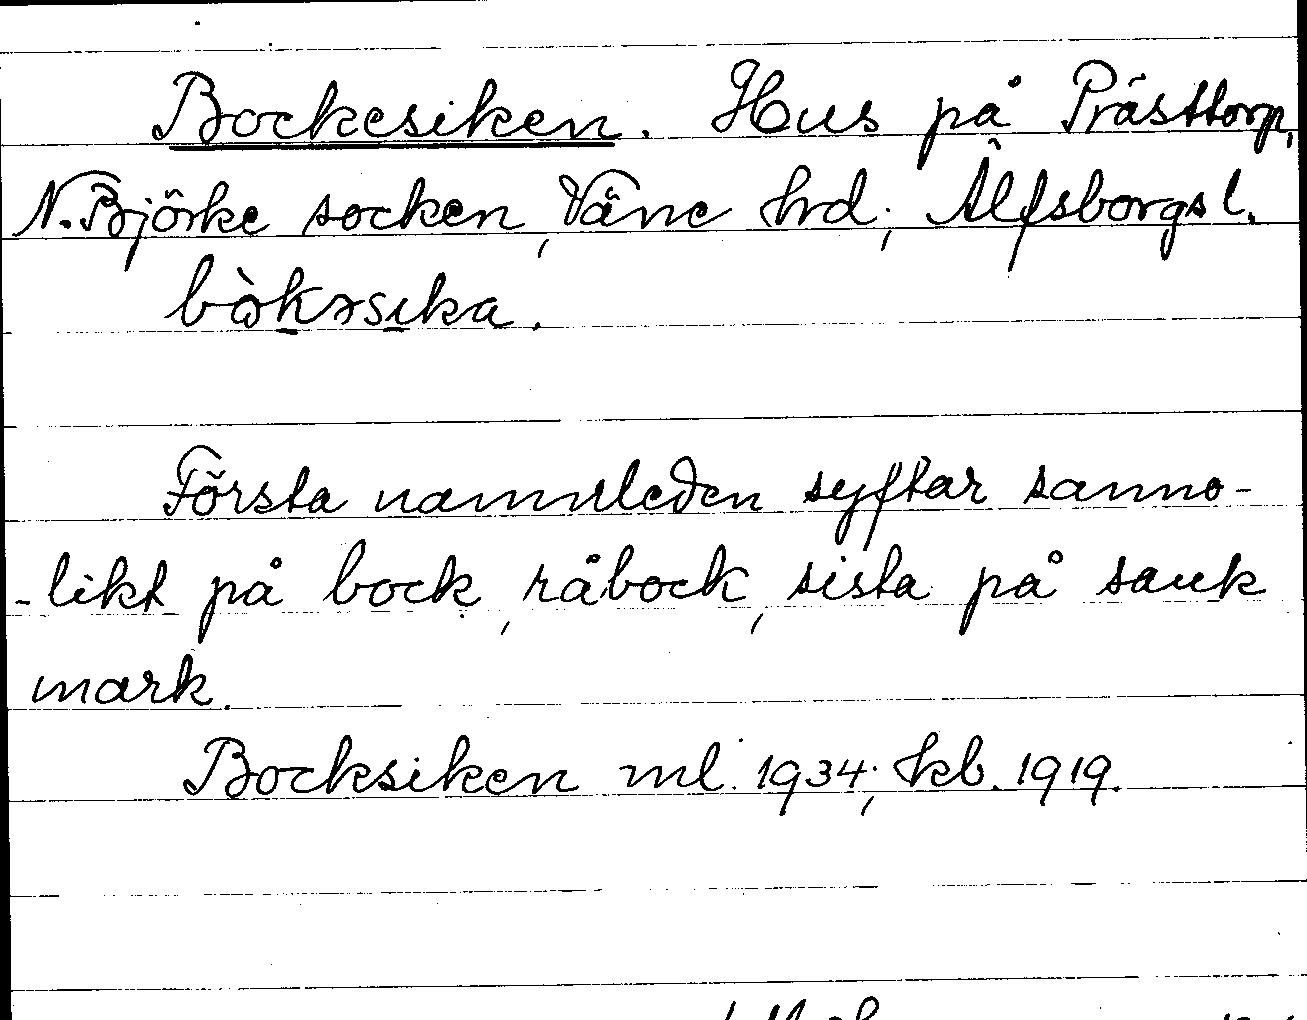 Bockesiken. Hus på Prästtorp,
N. Björke socken, Väne hrd, Älfsborgs l.
bòkəsika.
Första namnleden syftar sanno-
-likt på bock, råbock, sista på sank
mark.
Bocksiken ml. 1934; kb. 1919.